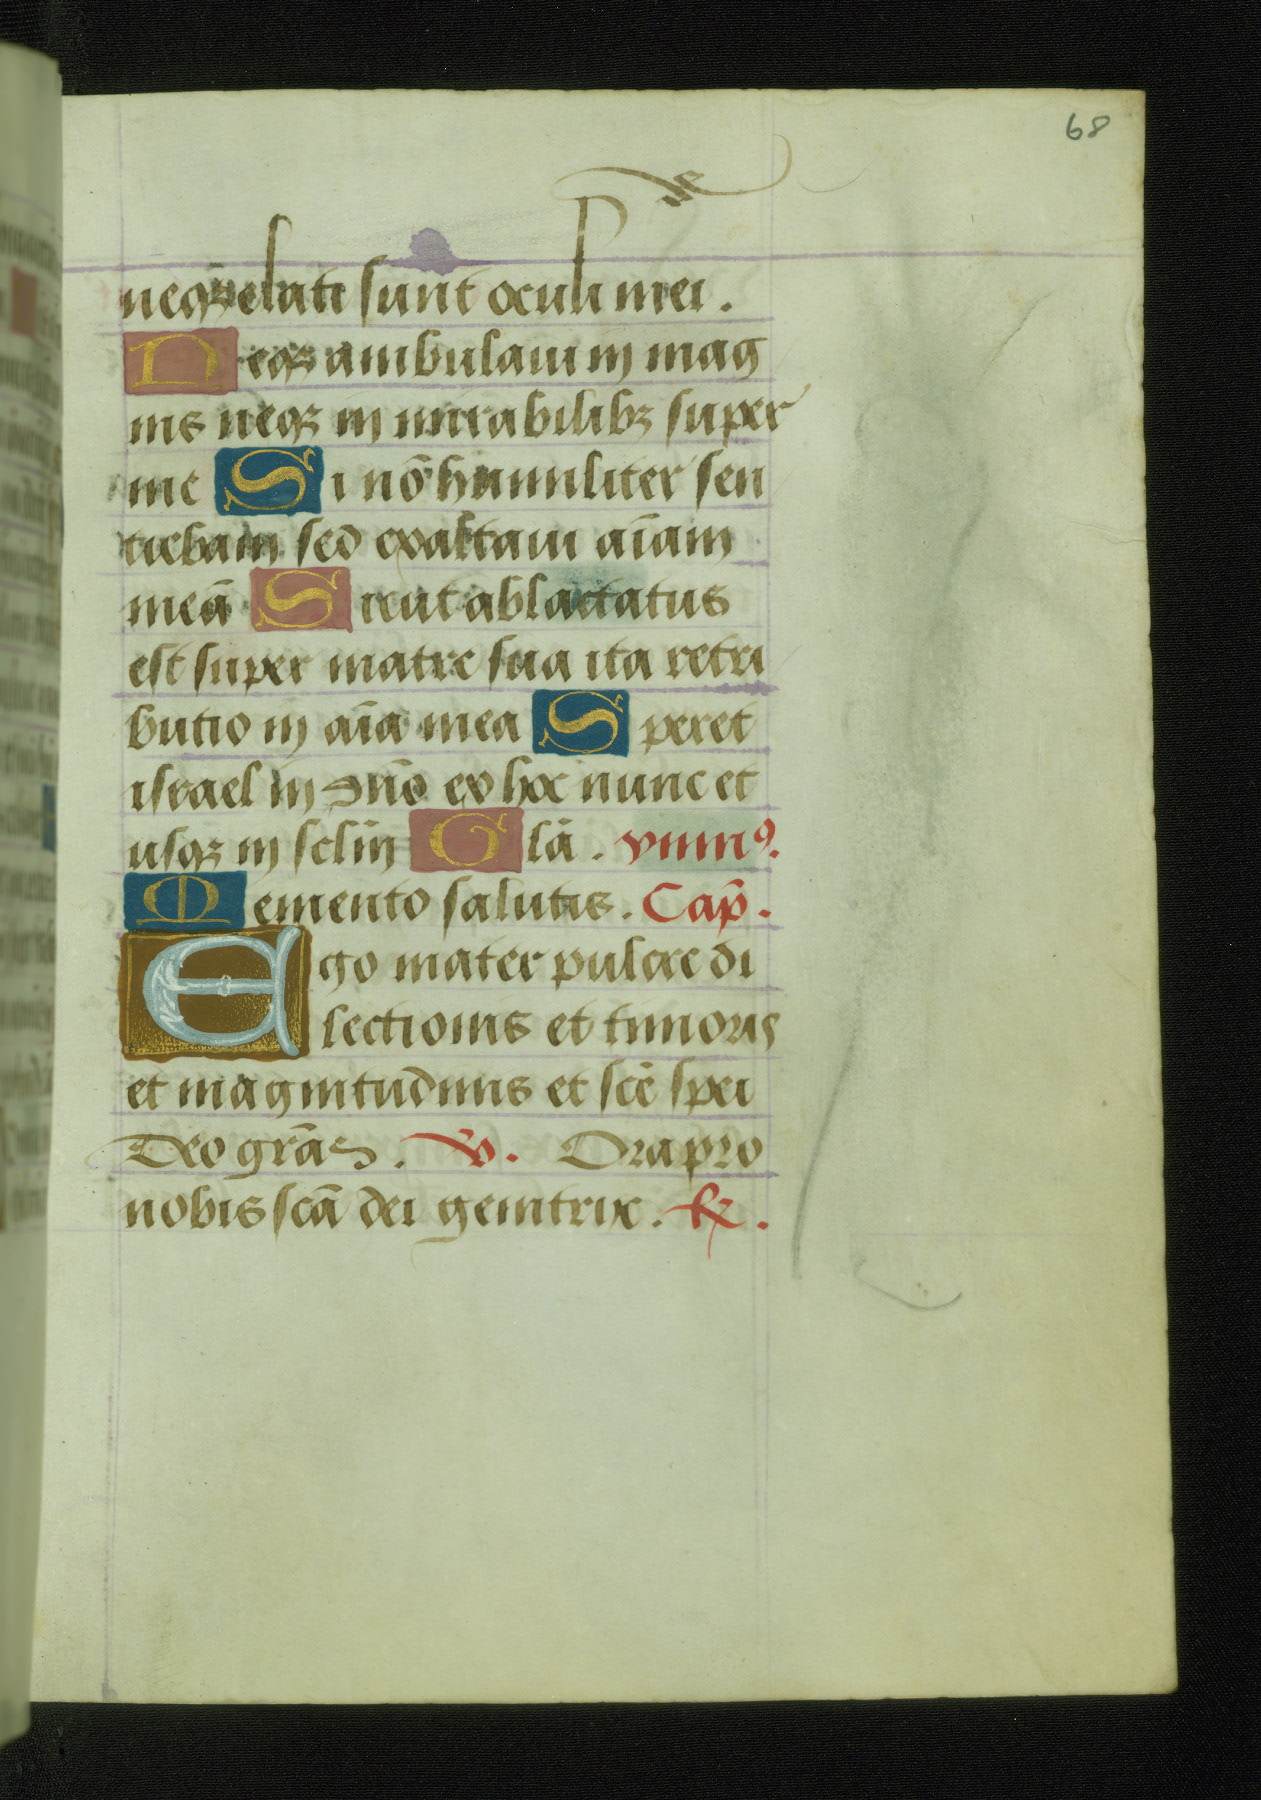 68
neqꝫ elati sunt oculi mei .
Neqꝫ ambulaui in mag
nis neqꝫ in mirabilibꝫ super
me Si nō humiliter sen
tiebam sed exaltaui aīam
meā Sicut ablactatus
est super matre sua ita retri
butio in aīa mea Speret
israel in dn̄o ex hoc nunc et
usqꝫ in sclm̄ Glā . ymnꝰ.
Memento salutis . Cap̄ .
Ego mater pulcre di
lectionis et timoris
et magnitudinis et scē spei
Deo grās . ℣ . Ora pro
nobis scā dei genitrix . ℟ .